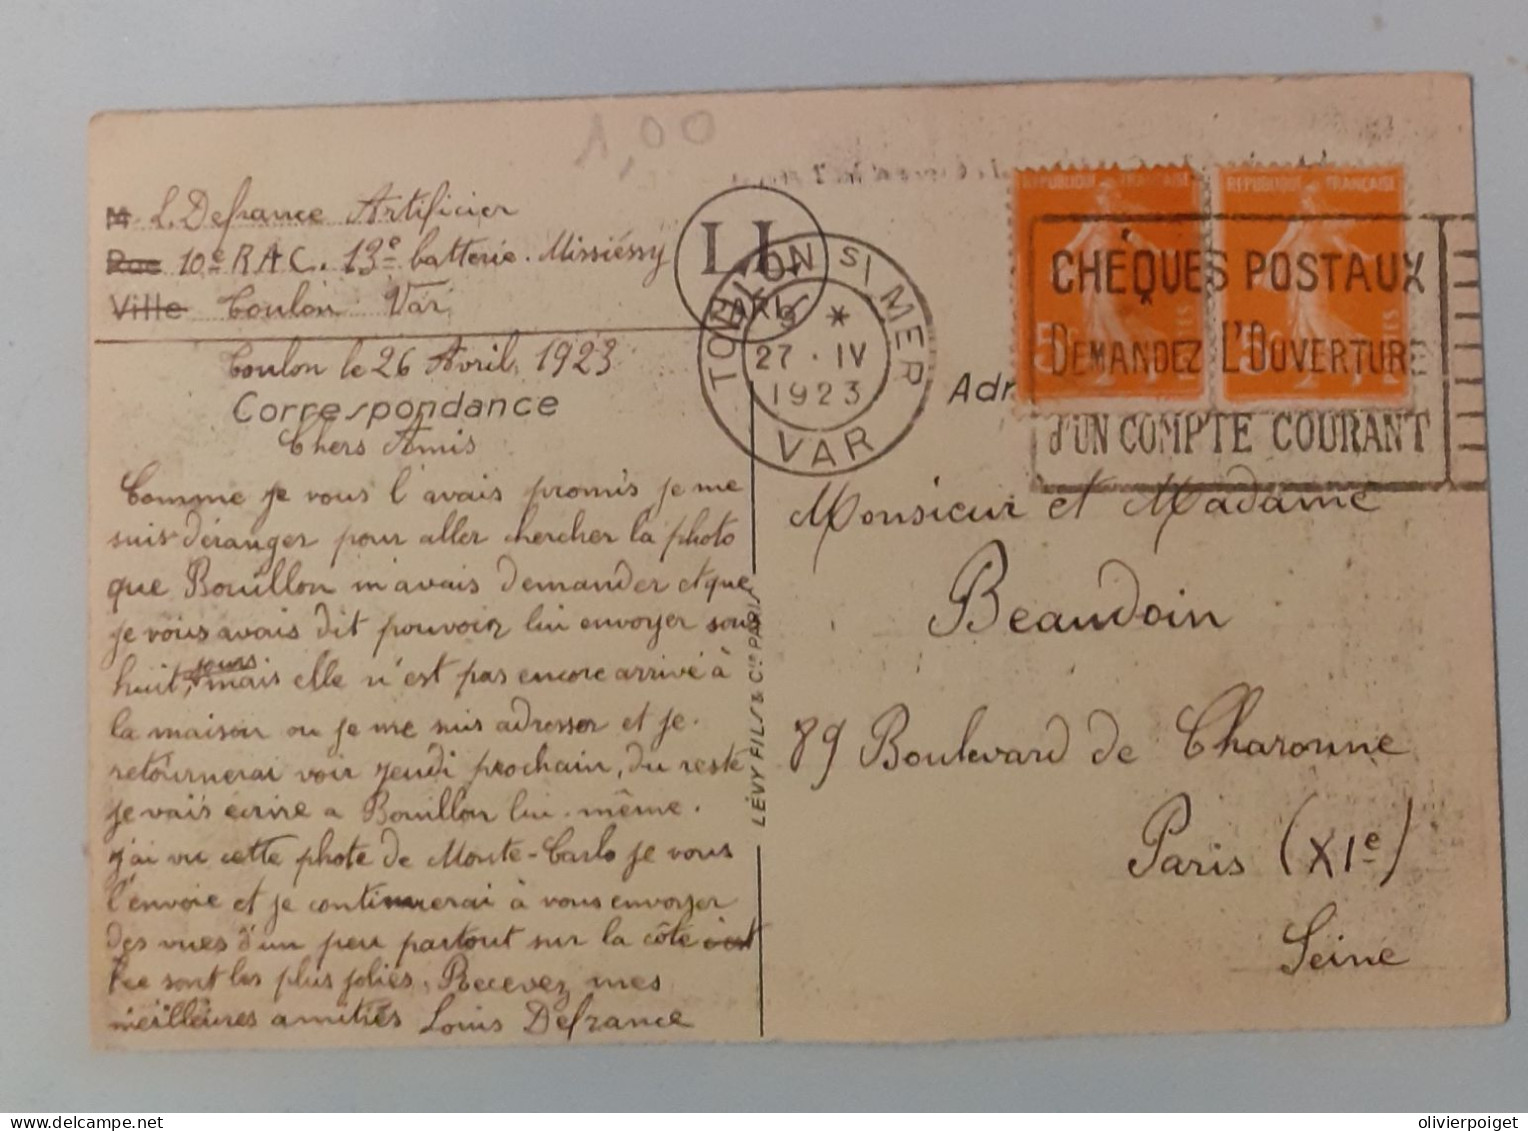 1,00
M. L. Defrance Artificier
Rue 10e R.A.C. 13e batterie. Missiéssy
Ville Toulon Var
Toulon le 26 Avril, 1923
Correspondance
Chers Amis
Comme je vous l'avais promis je me
suis déranger pour aller chercher la photo
que Bouillon m'avais demander et que
je vous avais dit pouvoir lui envoyer sous
huit, jours. mais elle n'est pas encore arrivé à
la maison ou je me suis adresser et je.
retournerai voir jeudi prochain, du reste
je vais écrire a Bouillon lui-même.
j'ai vu cette photo de Monte-Carlo je vous
l'envoie et je continuerai à vous envoyer
des vues d'un peu partout sur la côte
sont les plus jolies, Recevez mes
meilleures amitiés Louis Defrance
LÉVY FILS & Cie PARIS
LL
TOULON S/ MER
9 *
27 · IV
1923
VAR
REPUBLIQUE FRANÇAISE
REPUBLIQUE FRANÇAISE
CHÈQUES POSTAUX
DEMANDEZ L'OUVERTURE
D'UN COMPTE COURANT
Adr
Monsieur et Madame
Beaudoin
89 Boulevard de Charonne
Paris (XIe)
Seine
olivierpoiget